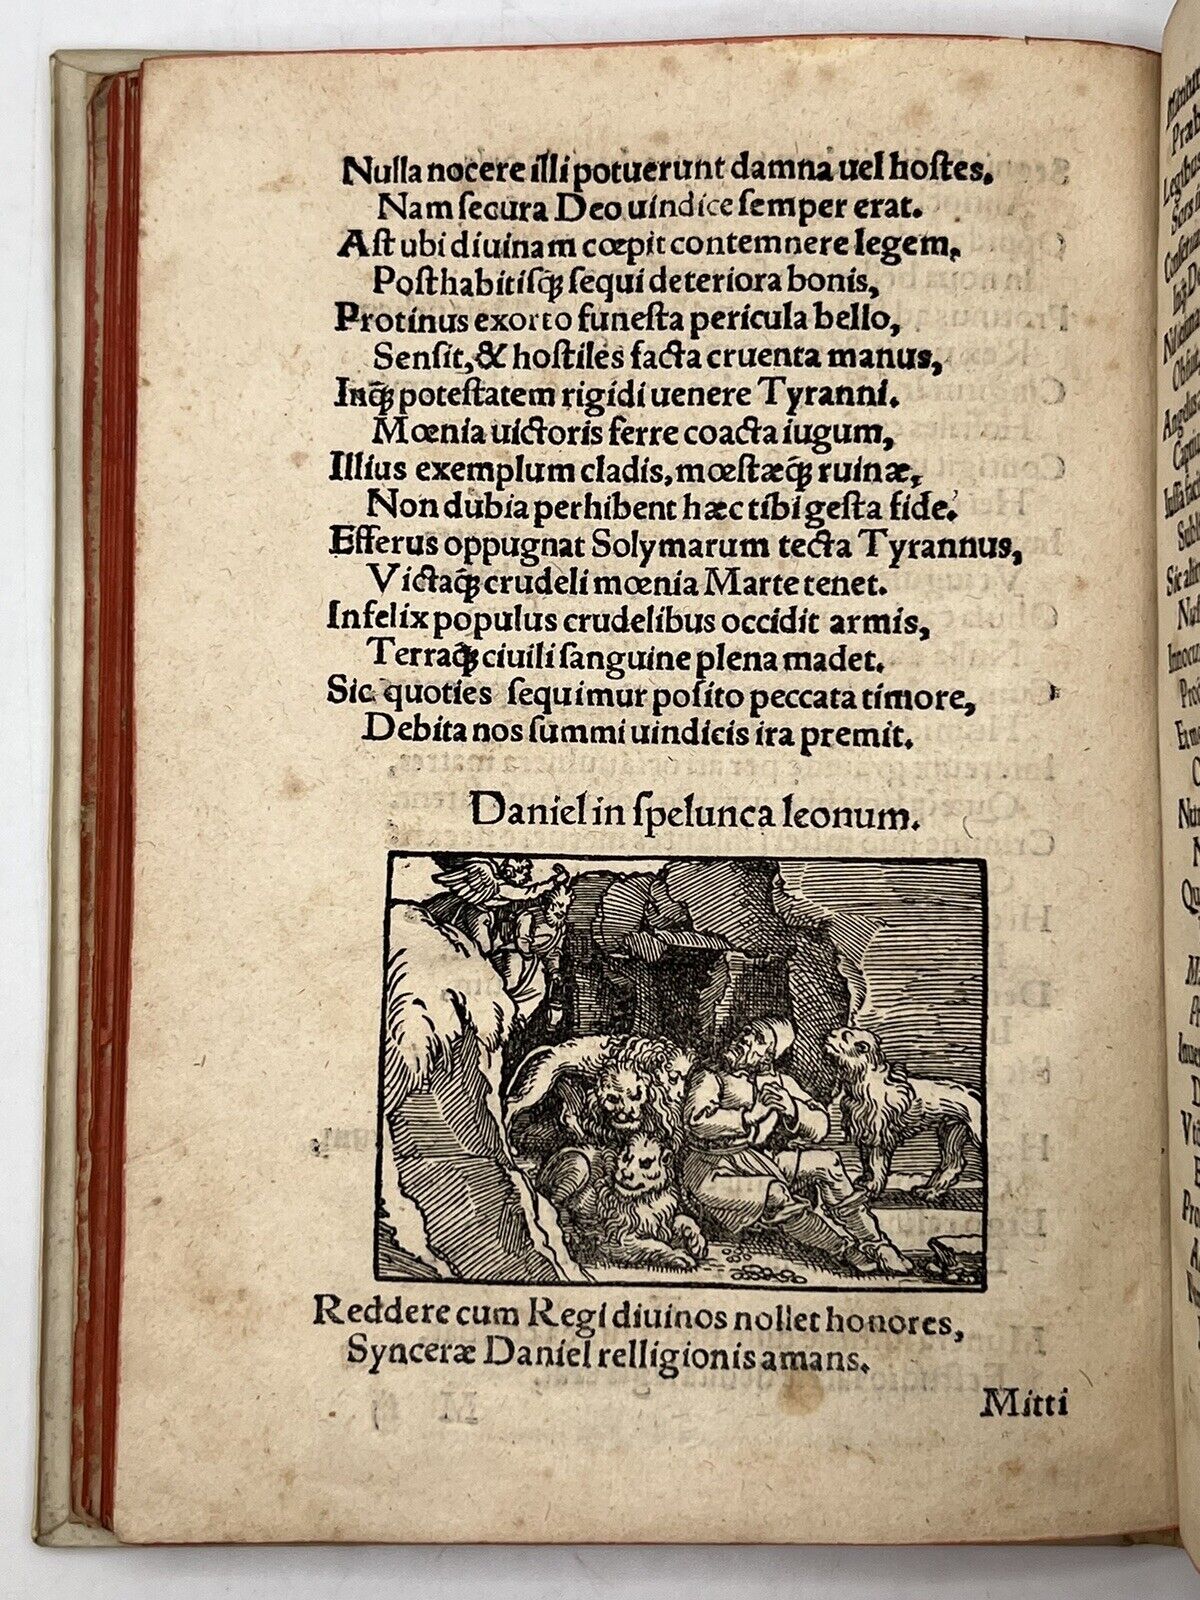 Nulla nocere illi potuerunt damna uel hoſtes,
Nam ſecura Deo uindice ſemper erat.
Aſt ubi diuinam cœpit contemnere legem,
Poſthabitiſq́; ſequi deteriora bonis,
Protinus exorto funeſta pericula bello,
Senſit, & hoſtiles facta cruenta manus,
Inq́; poteſtatem rigidi uenere Tyranni.
Mœnia uictoris ferre coacta iugum,
Illius exemplum cladis, mœſtæq́; ruinæ,
Non dubia perhibent hæc tibi geſta fide.
Efferus oppugnat Solymarum tecta Tyrannus,
Victaq́; crudeli mœnia Marte tenet.
Infelix populus crudelibus occidit armis,
Terraq́; ciuili ſanguine plena madet.
Sic quoties ſequimur poſito peccata timore,
Debita nos ſummi uindicis ira premit.
Daniel in ſpelunca leonum.
Reddere cum Regi diuinos nollet honores,
Synceræ Daniel relligionis amans.
Mitti